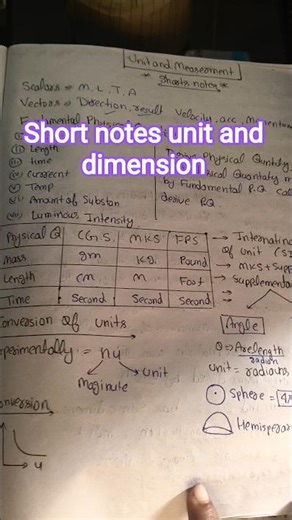 Unit and Measurement
* Shorts notes *
Scalars => M, L, T, A
Vectors => Direction, result Velocity, acc, Momentum
Short notes unit and
dimension
(ii) Length
(iii) time
(iv) current
(v) Temp
(vi) Amount of Substan
(vii) Luminous Intensity
by Fundamental P.Q.
derive P.Q
Physical Q C G.S. MKS FPS
Mass gm KG. Pound
Length cm m Foot
Time Second Second Second
→ Internation
of unit (SI
→ MKS + Supp
→ Supplementar
Conversion of units
perimentally = nu
unit
Maginute
Angle
θ => Arc length
radian
unit = radiauns
Sphere = 4π
Hemisperar
onversion
u